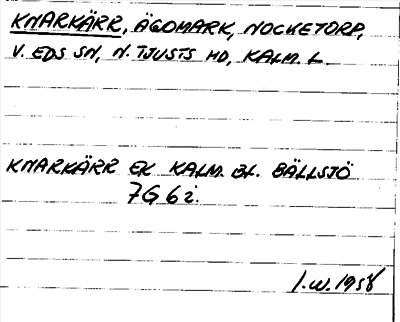 KNARKÄRR, ÄGOMARK, NOCKETORP,
V. EDS SN, N. TJUSTS HD, KALM. L.
KNARKÄRR EK KALM. BL. BÄLLSJÖ
7G 6i.
I.W. 1958